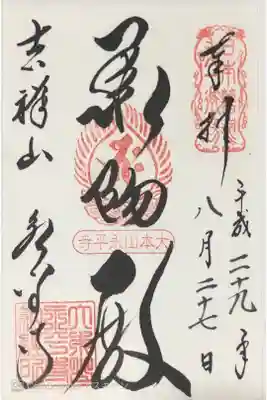 奉拝
平成二十九年
八月二十七日
承陽殿
大本山永平寺
吉祥山 永平寺